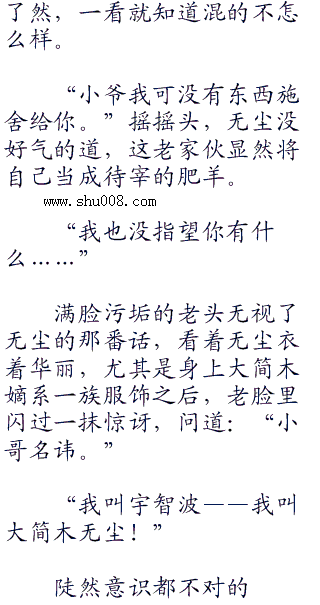 了然，一看就知道混的不怎
么样。
“小爷我可没有东西施
舍给你。”摇摇头，无尘没
好气的道，这老家伙显然将
自己当成待宰的肥羊。
www.shu008.com
“我也没指望你有什
么……”
满脸污垢的老头无视了
无尘的那番话，看着无尘衣
着华丽，尤其是身上大简木
嫡系一族服饰之后，老脸里
闪过一抹惊讶，问道：“小
哥名讳。”
“我叫宇智波——我叫
大简木无尘！”
陡然意识都不对的